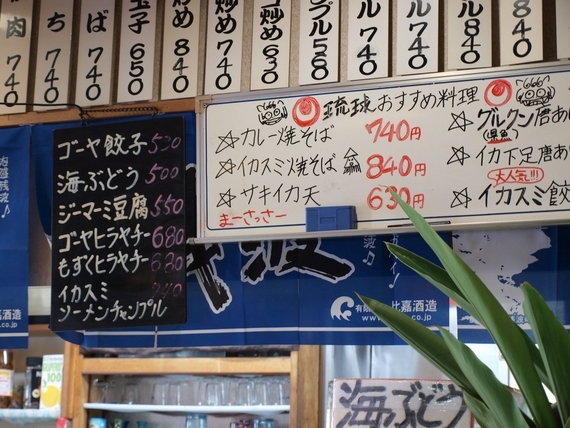 肉 740
ごち 740
ば 740
玉子 650
炒め 840
炒め 740
コ炒め 630
プル 560
ル 740
ル 740
ル 740
840
琉球おすすめ料理
☆カレー焼そば 740円
☆イカスミ焼そば 840円
☆サキイカ天 630円
まーさっさー
☆グルクン唐あ
(県魚)
☆イカ下足唐あ
大人気!!!
☆イカスミ餃
ゴーヤ餃子 530
海ぶどう 500
ジーマーミ豆腐 550
ゴーヤヒラヤチー 680
もずくヒラヤチー 680
イカスミ
ソーメンチャンプル
波
比嘉酒造
.co.jp
嘉酒造
.co.jp
海ぶどう